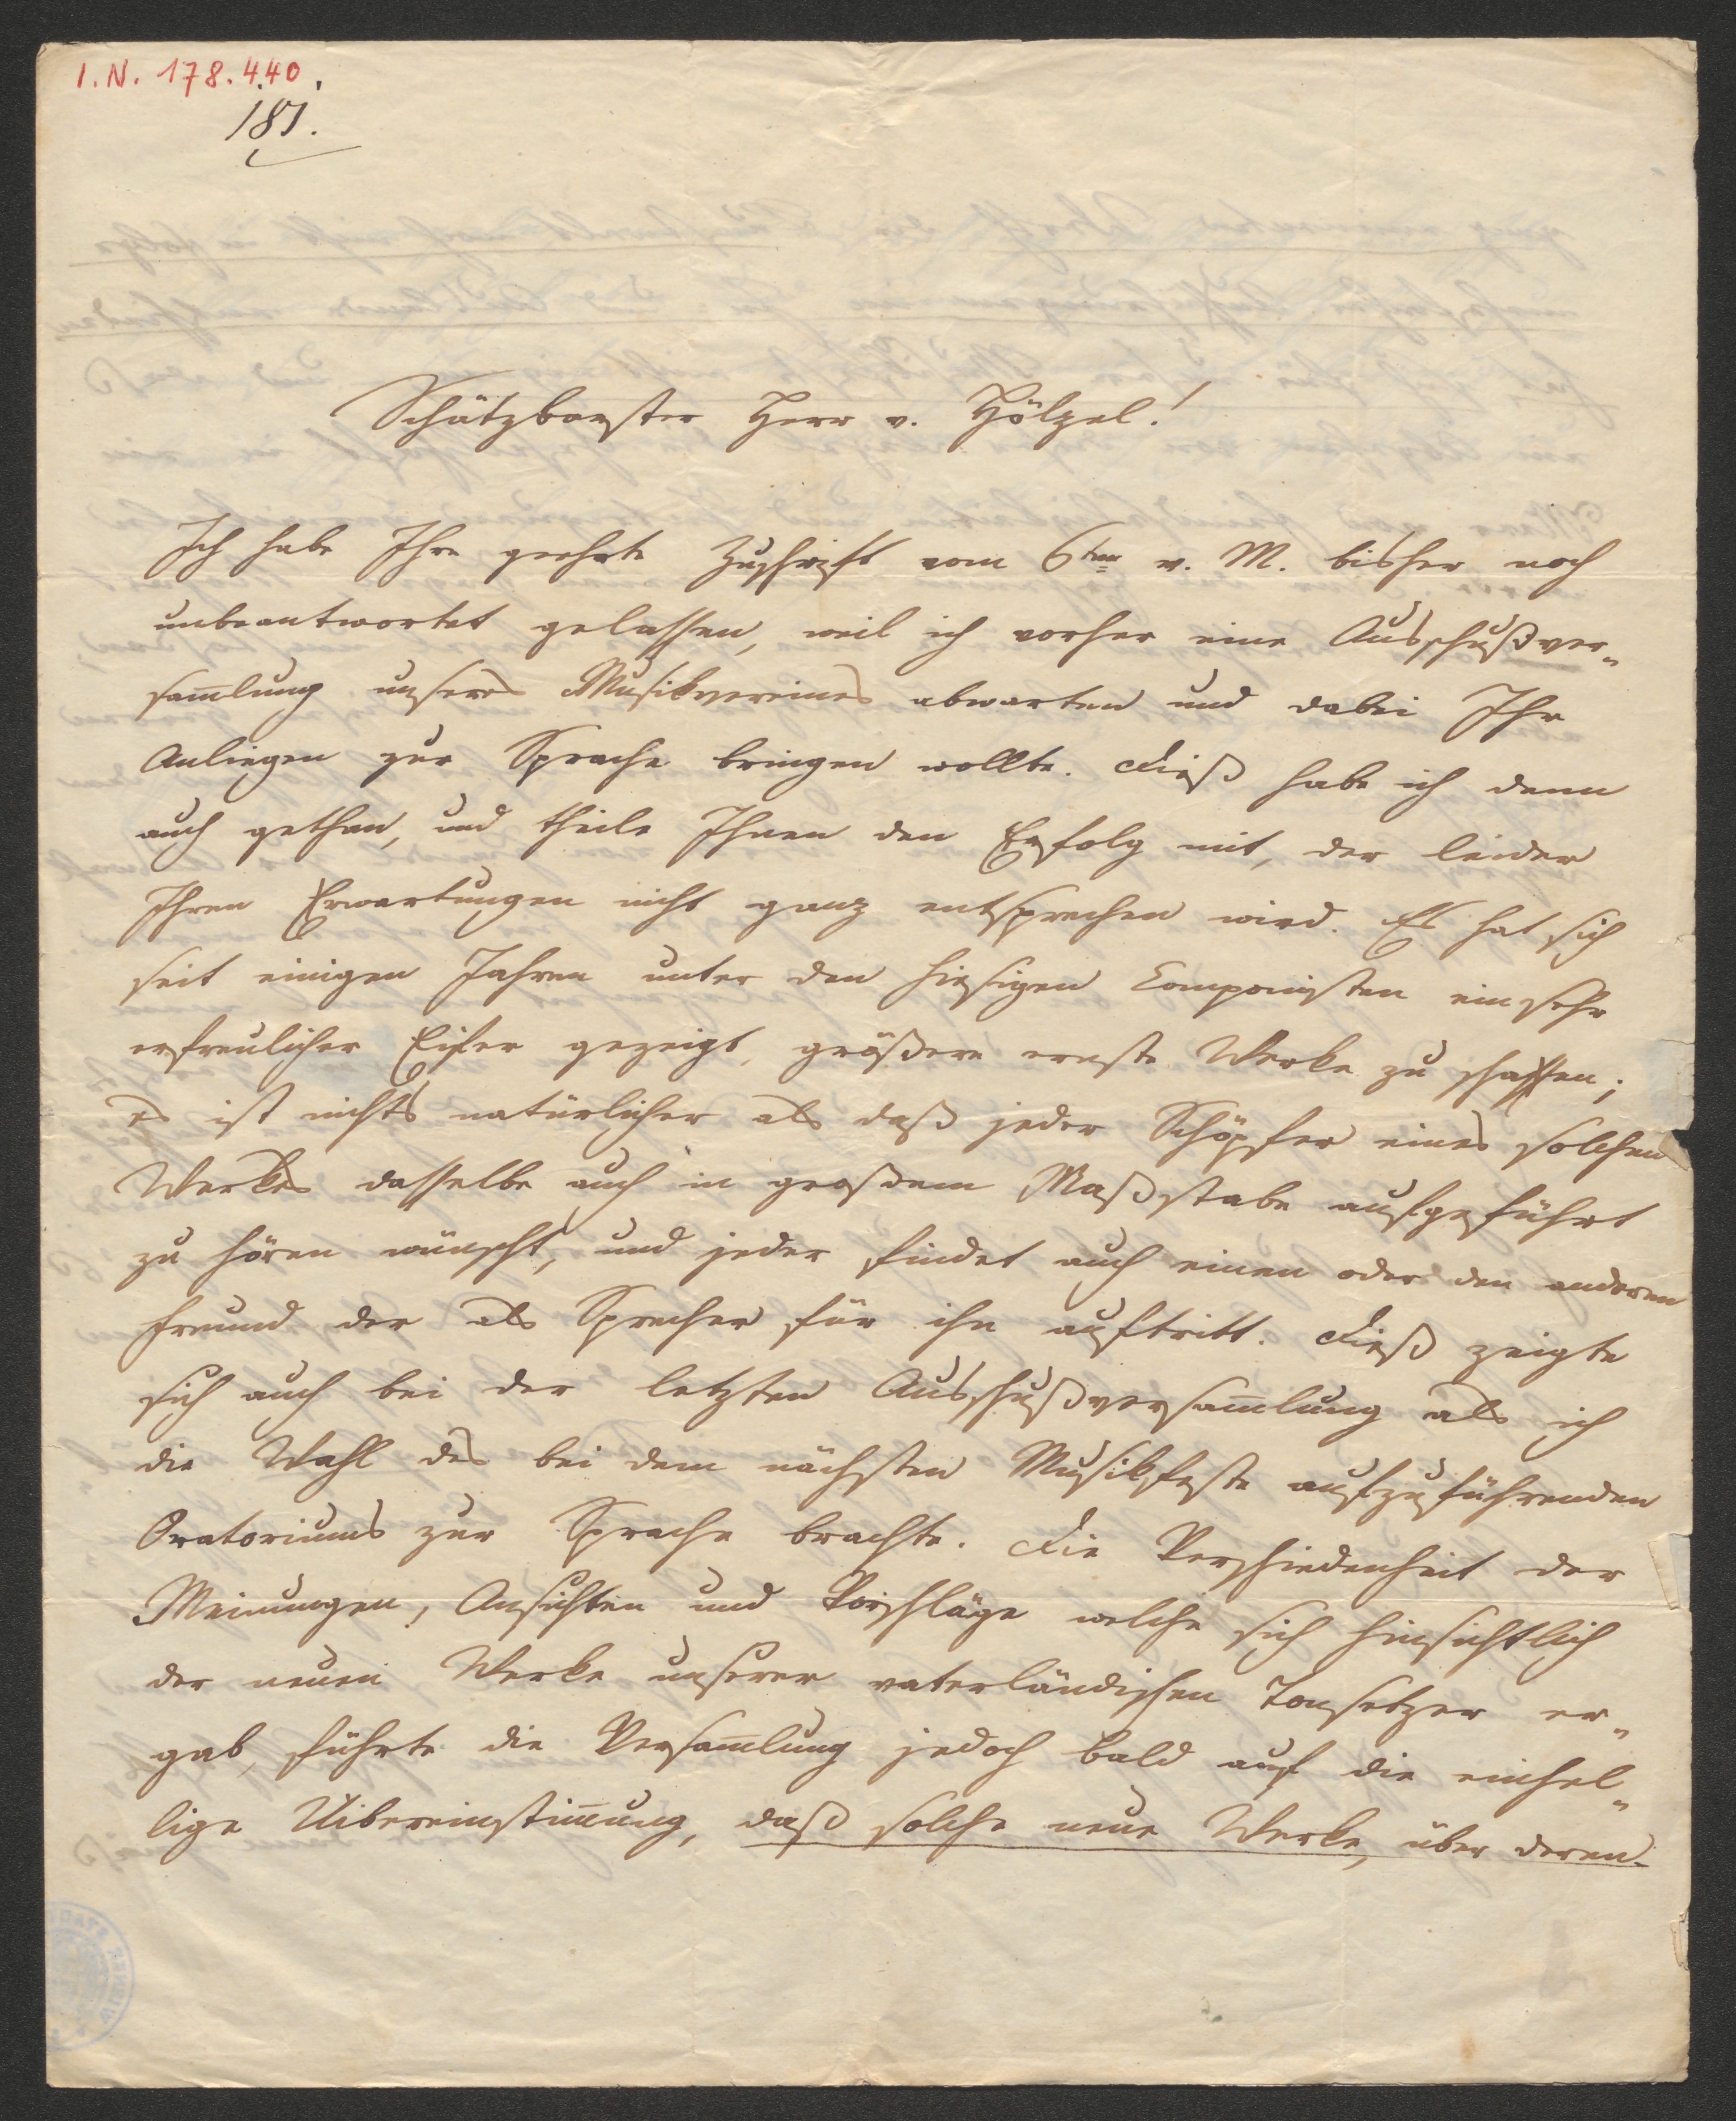 I. N. 178.440.
181.
Schätzbarster Herr v. Hölzel!
Ich habe Ihre geehrte Zuschrift vom 6ten v. M. bisher noch
unbeantwortet gelassen, weil ich vorher eine Ausschußver-
sam̅lung unseres Musikvereines abwarten und dabei Ihr
Anliegen zur Sprache bringen wollte. Dieß habe ich denn
auch gethan, und theile Ihnen den Erfolg mit, der leider
Ihren Erwartungen nicht ganz entsprechen wird. Es hat sich
seit einigen Jahren unter den hiesigen Componisten ein sehr
erfreulicher Eifer gezeigt, größere ernste Werke zu schaffen;
es ist nichts natürlicher als daß jeder Schöpfer eines solchen
Werkes dasselbe auch in großem Maßstabe aufgeführt
zu hören wünscht, und jeder findet auch einen oder den anderen
Freund der als Sprecher für ihn auftritt. Dieß zeigte
sich auch bei der letzten Ausschußversam̅lung als ich
die Wahl des bei dem nächsten Musikfeste aufzuführenden
Oratoriums zur Sprache brachte. Die Verschiedenheit der
Meinungen, Ansichten und Vorschläge welche sich hinsichtlich
der neuen Werke unserer vaterländischen Tonsetzer er-
gab, führte die Versam̅lung jedoch bald auf die einhel-
lige Uibereinstim̅ung, daß solche neue Werke, über deren